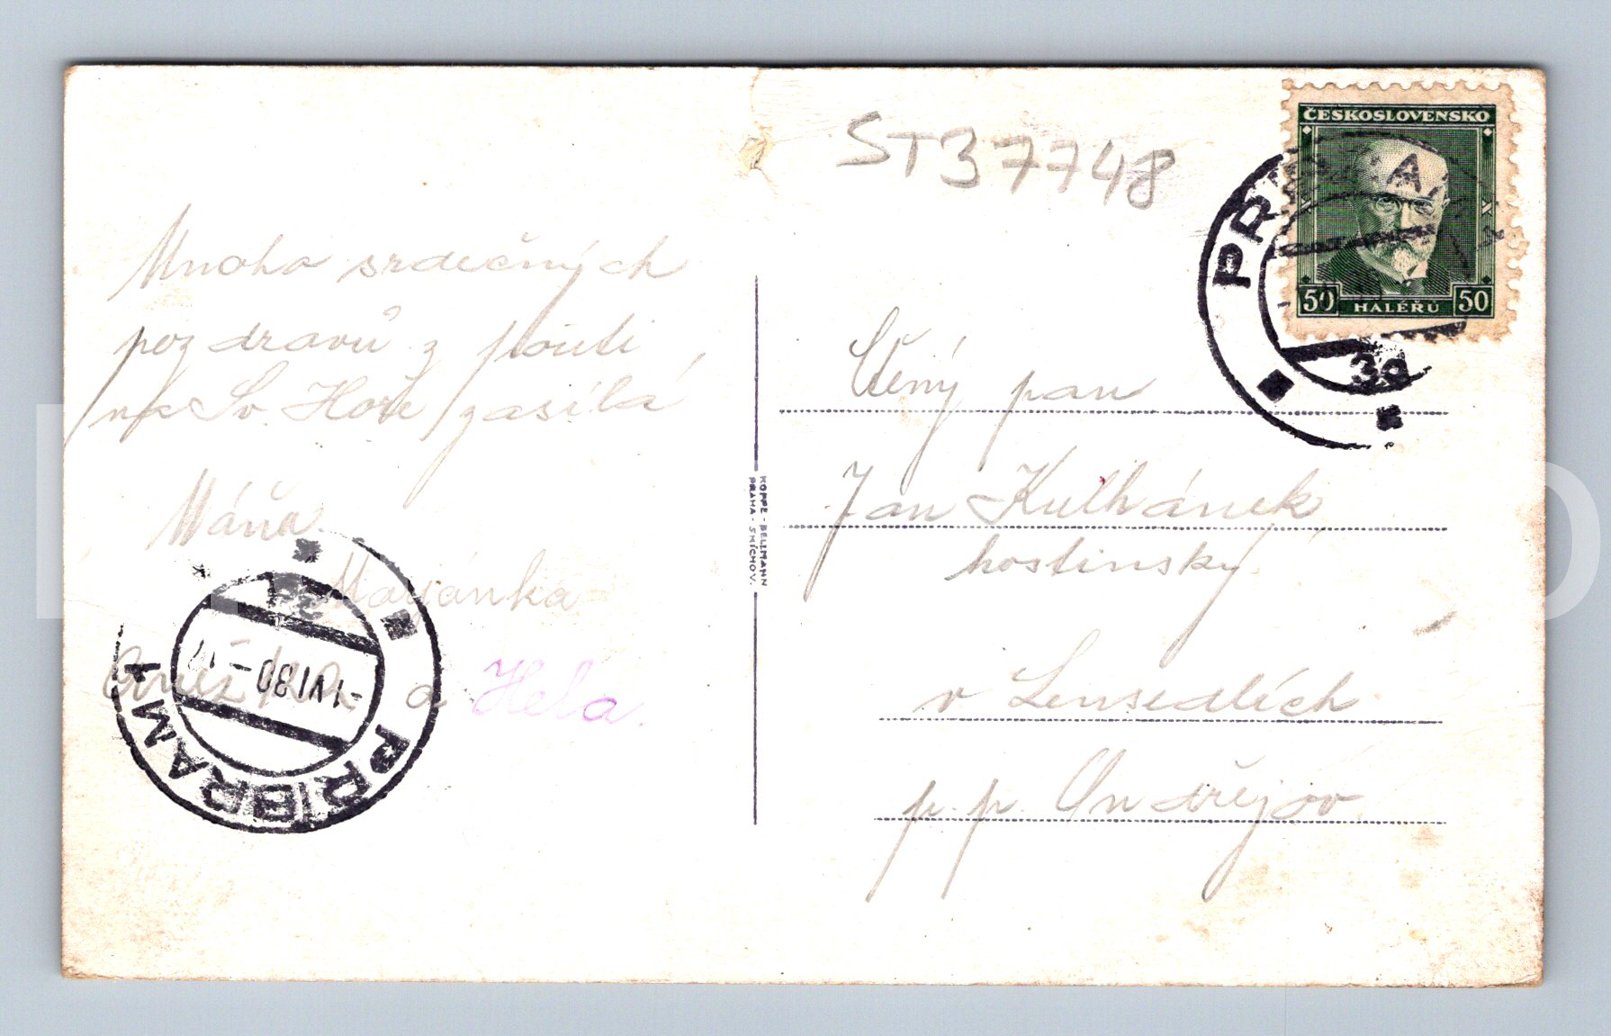 ST37748
Mnoho srdečných
pozdravů z pouti
na Sv. Hoře zasílá
Máňa
Marjánka
Anežka a Hela.
Ctěný pan
Jan Kulhánek
hostinský
v Lensedlích
p. p. Ondřejov.
KOPPE - BELLMANN
PRAHA - SMÍCHOV.
ČESKOSLOVENSKO
50 HALÉŘŮ 50
PŘÍBRAM 1
-1 VI 30 - 17